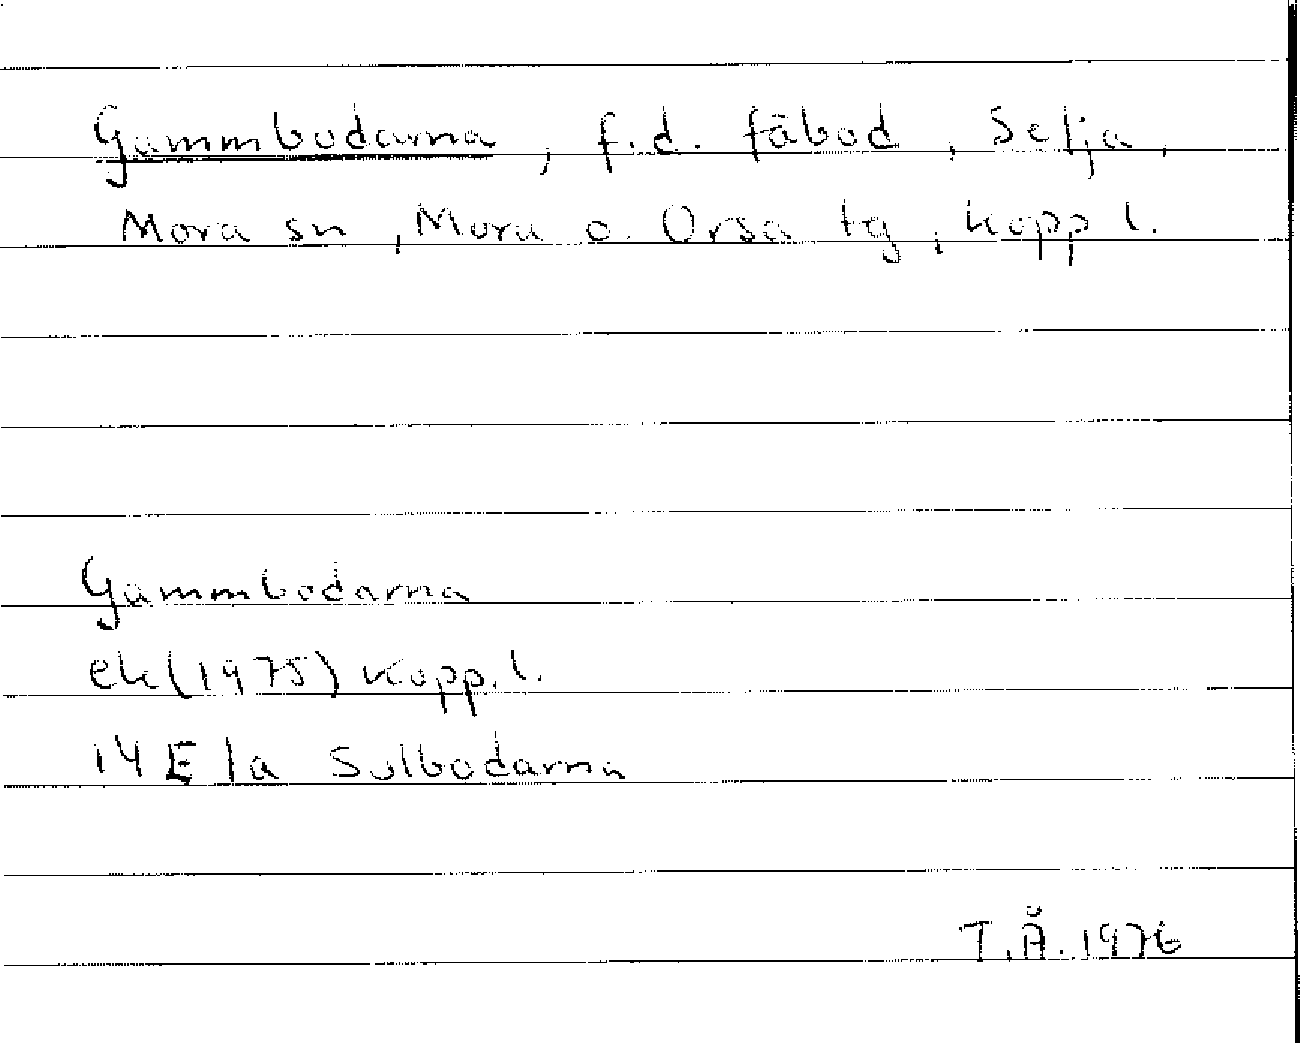 Gammbodarna, f.d. fäbod, Selja,
Mora sn, Mora o. Orsa tg, Kopp l.
Gammbodarna
ek (1975) Kopp. l.
14 E 1a Sulbodarna
T.Å. 1976